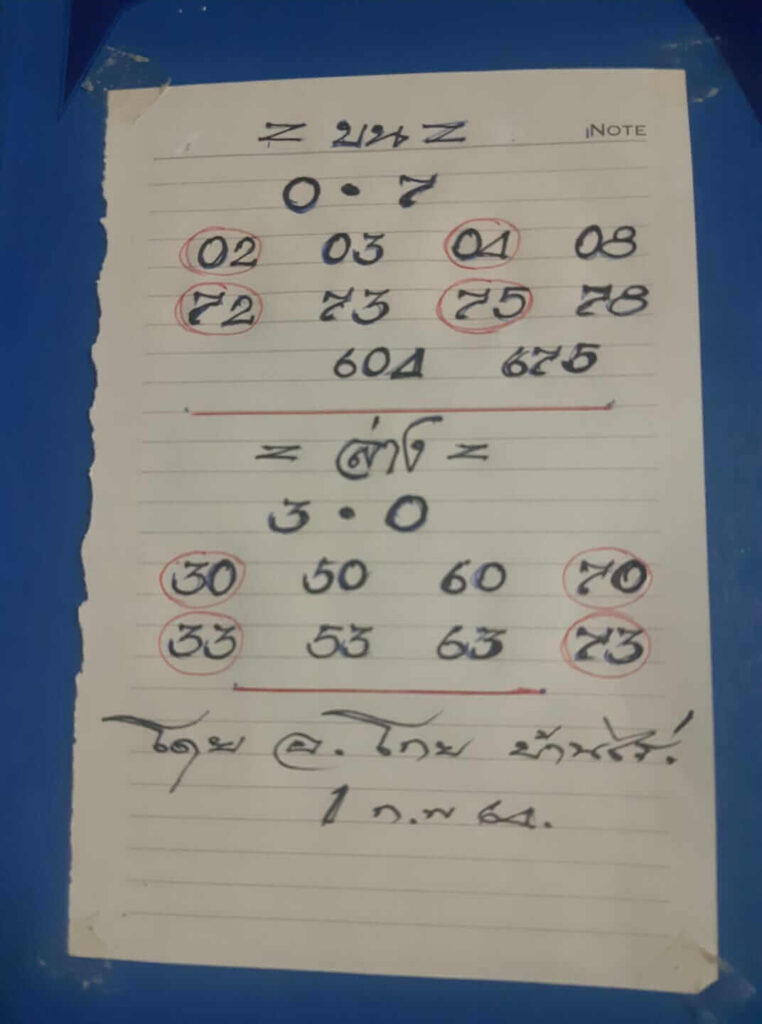 = บน =
NOTE
0 • 7
02 03 04 08
72 73 75 78
604 675
= ล่าง =
3 • 0
30 50 60 70
33 53 63 73
โดย อ. โกย บ้านไร่.
1 ก.พ 64.